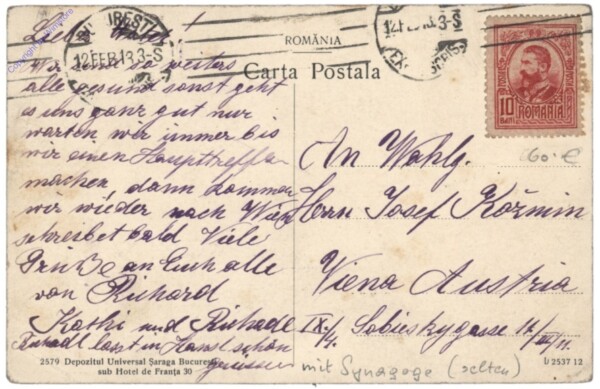 BUCUREȘTI
12 FEB 13. 3-S
12 FEB 13. 3-S
ROMÂNIA
Carta Postala
10 BANI 10
ROMANIA
60.- €
Wir sind so weiters
alle gesund sonst geht
es uns ganz gut nur
warten wir immer bis
wir einen Haupttreffer
machen, dann kommen
wir wieder nach Wien
schreibet bald Viele
Grüße an Euch alle
von Richard
Kathi und Richard
Richard lasst in Hansl schön
grüssen
An Wohlg.
Herrn Josef Kožmin
Viena Austria
IX/4. Sobieskygasse 17/III/11.
2579 Depozitul Universal Șaraga București
sub Hotel de Franța 30
b 2537 12
mit Synagoge (selten)